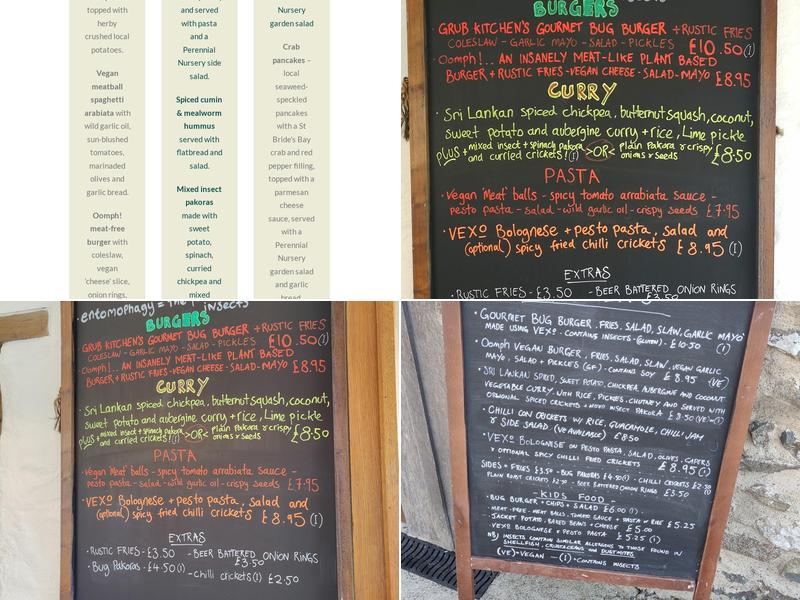 topped with
herby
crushed local
potatoes.
Vegan
meatball
spaghetti
arabiata with
wild garlic oil,
sun-blushed
tomatoes,
marinaded
olives and
garlic bread.
Oomph!
meat-free
burger with
coleslaw,
vegan
'cheese' slice,
onion rings,
and served
with pasta
and a
Perennial
Nursery side
salad.
Spiced cumin
& mealworm
hummus
served with
flatbread and
salad.
Mixed insect
pakoras
made with
sweet
potato,
spinach,
curried
chickpea and
mixed
Nursery
garden salad
Crab
pancakes –
local
seaweed-
speckled
pancakes
with a St
Bride's Bay
crab and red
pepper filling,
topped with a
parmesan
cheese
sauce, served
with a
Perennial
Nursery
garden salad
and garlic
bread
BURGERS
GRUB KITCHEN'S GOURMET BUG BURGER + RUSTIC FRIES
COLESLAW - GARLIC MAYO - SALAD - PICKLES £10.50(I)
Oomph!.. AN INSANELY MEAT-LIKE PLANT BASED
BURGER + RUSTIC FRIES - VEGAN CHEESE - SALAD - MAYO £8.95
CURRY
Sri Lankan spiced chickpea, butternut squash, coconut,
sweet potato and aubergine curry + rice, Lime pickle
plus + mixed insect + spinach pakora and curried crickets!(I) >OR< plain Pakora r crispy onions r seeds £8.50
PASTA
Vegan 'Meat' balls - spicy tomato arrabiata sauce -
pesto pasta - salad - wild garlic oil - crispy seeds £7.95
VEXo Bolognese + pesto pasta, salad and
(optional) spicy fried chilli crickets £8.95 (I)
EXTRAS
RUSTIC FRIES - £3.50 - BEER BATTERED ONION RINGS
£3.50
entomophagy = the insects
BURGERS
GRUB KITCHEN'S GOURMET BUG BURGER + RUSTIC FRIES
COLESLAW - GARLIC MAYO - SALAD - PICKLES £10.50(I)
Oomph!.. AN INSANELY MEAT-LIKE PLANT BASED
BURGER + RUSTIC FRIES - VEGAN CHEESE - SALAD - MAYO £8.95
CURRY
Sri Lankan spiced chickpea, butternut squash, coconut,
sweet potato and aubergine curry + rice, Lime pickle
plus + mixed insect + spinach pakora and curried crickets!(I) >OR< plain Pakora r crispy onions r seeds £8.50
PASTA
Vegan 'Meat' balls - spicy tomato arrabiata sauce -
pesto pasta - salad - wild garlic oil - crispy seeds £7.95
VEXo Bolognese + pesto pasta, salad and
(optional) spicy fried chilli crickets £8.95 (I)
EXTRAS
RUSTIC FRIES - £3.50 - BEER BATTERED ONION RINGS
£3.50
Bug Pakoras - £4.50(I) - chilli crickets(I) £2.50
GOURMET BUG BURGER, FRIES, SALAD, SLAW, GARLIC MAYO
MADE USING VEXo - CONTAINS INSECTS - GLUTEN) - £10.50 (I)
Oomph VEGAN BURGER, FRIES, SALAD, SLAW, VEGAN GARLIC
MAYO, SALAD + PICKLES (GF) - CONTAINS SOY £8.95 (VE)
SRI LANKAN SPICED, SWEET POTATO, CHICKPEA, AUBERGINE AND COCONUT
VEGETABLE CURRY, WITH RICE, PICKLES, CHUTNEY AND SERVED WITH
OPTIONAL SPICED CRICKETS + MIXED INSECT PAKORA £8.50
CHILLI CON CRICKETS W RICE, GUACAMOLE, CHILLI JAM
r SIDE SALAD (VE AVAILABLE) £8.50
VEXo BOLOGNESE ON PESTO PASTA, SALAD, OLIVES, CAPERS
r OPTIONAL SPICY CHILLI FRIED CRICKETS £8.95 (I)
SIDES + FRIES £3.50 - BUG PAKORAS £4.50(I) - CHILLI CRICKETS £2.50 (I)
PLAIN ROAST CRICKETS £2.50 - BEER BATTERED ONION RINGS £3.50
- KIDS FOOD -
BUG BURGER + CHIPS + SALAD £6.00 (I)
MEAT-FREE - MEAT BALLS, TOMATO SAUCE + PASTA or RICE £5.25
JACKET POTATO, BAKED BEANS + CHEESE £5.00
VEXo BOLOGNESE + PESTO PASTA £5.25
NB) INSECTS CONTAIN SIMILAR ALLERGENS TO THOSE FOUND IN
SHELLFISH, CRUSTACEANS AND DUST MITES
(VE) = VEGAN - (I) = CONTAINS INSECTS